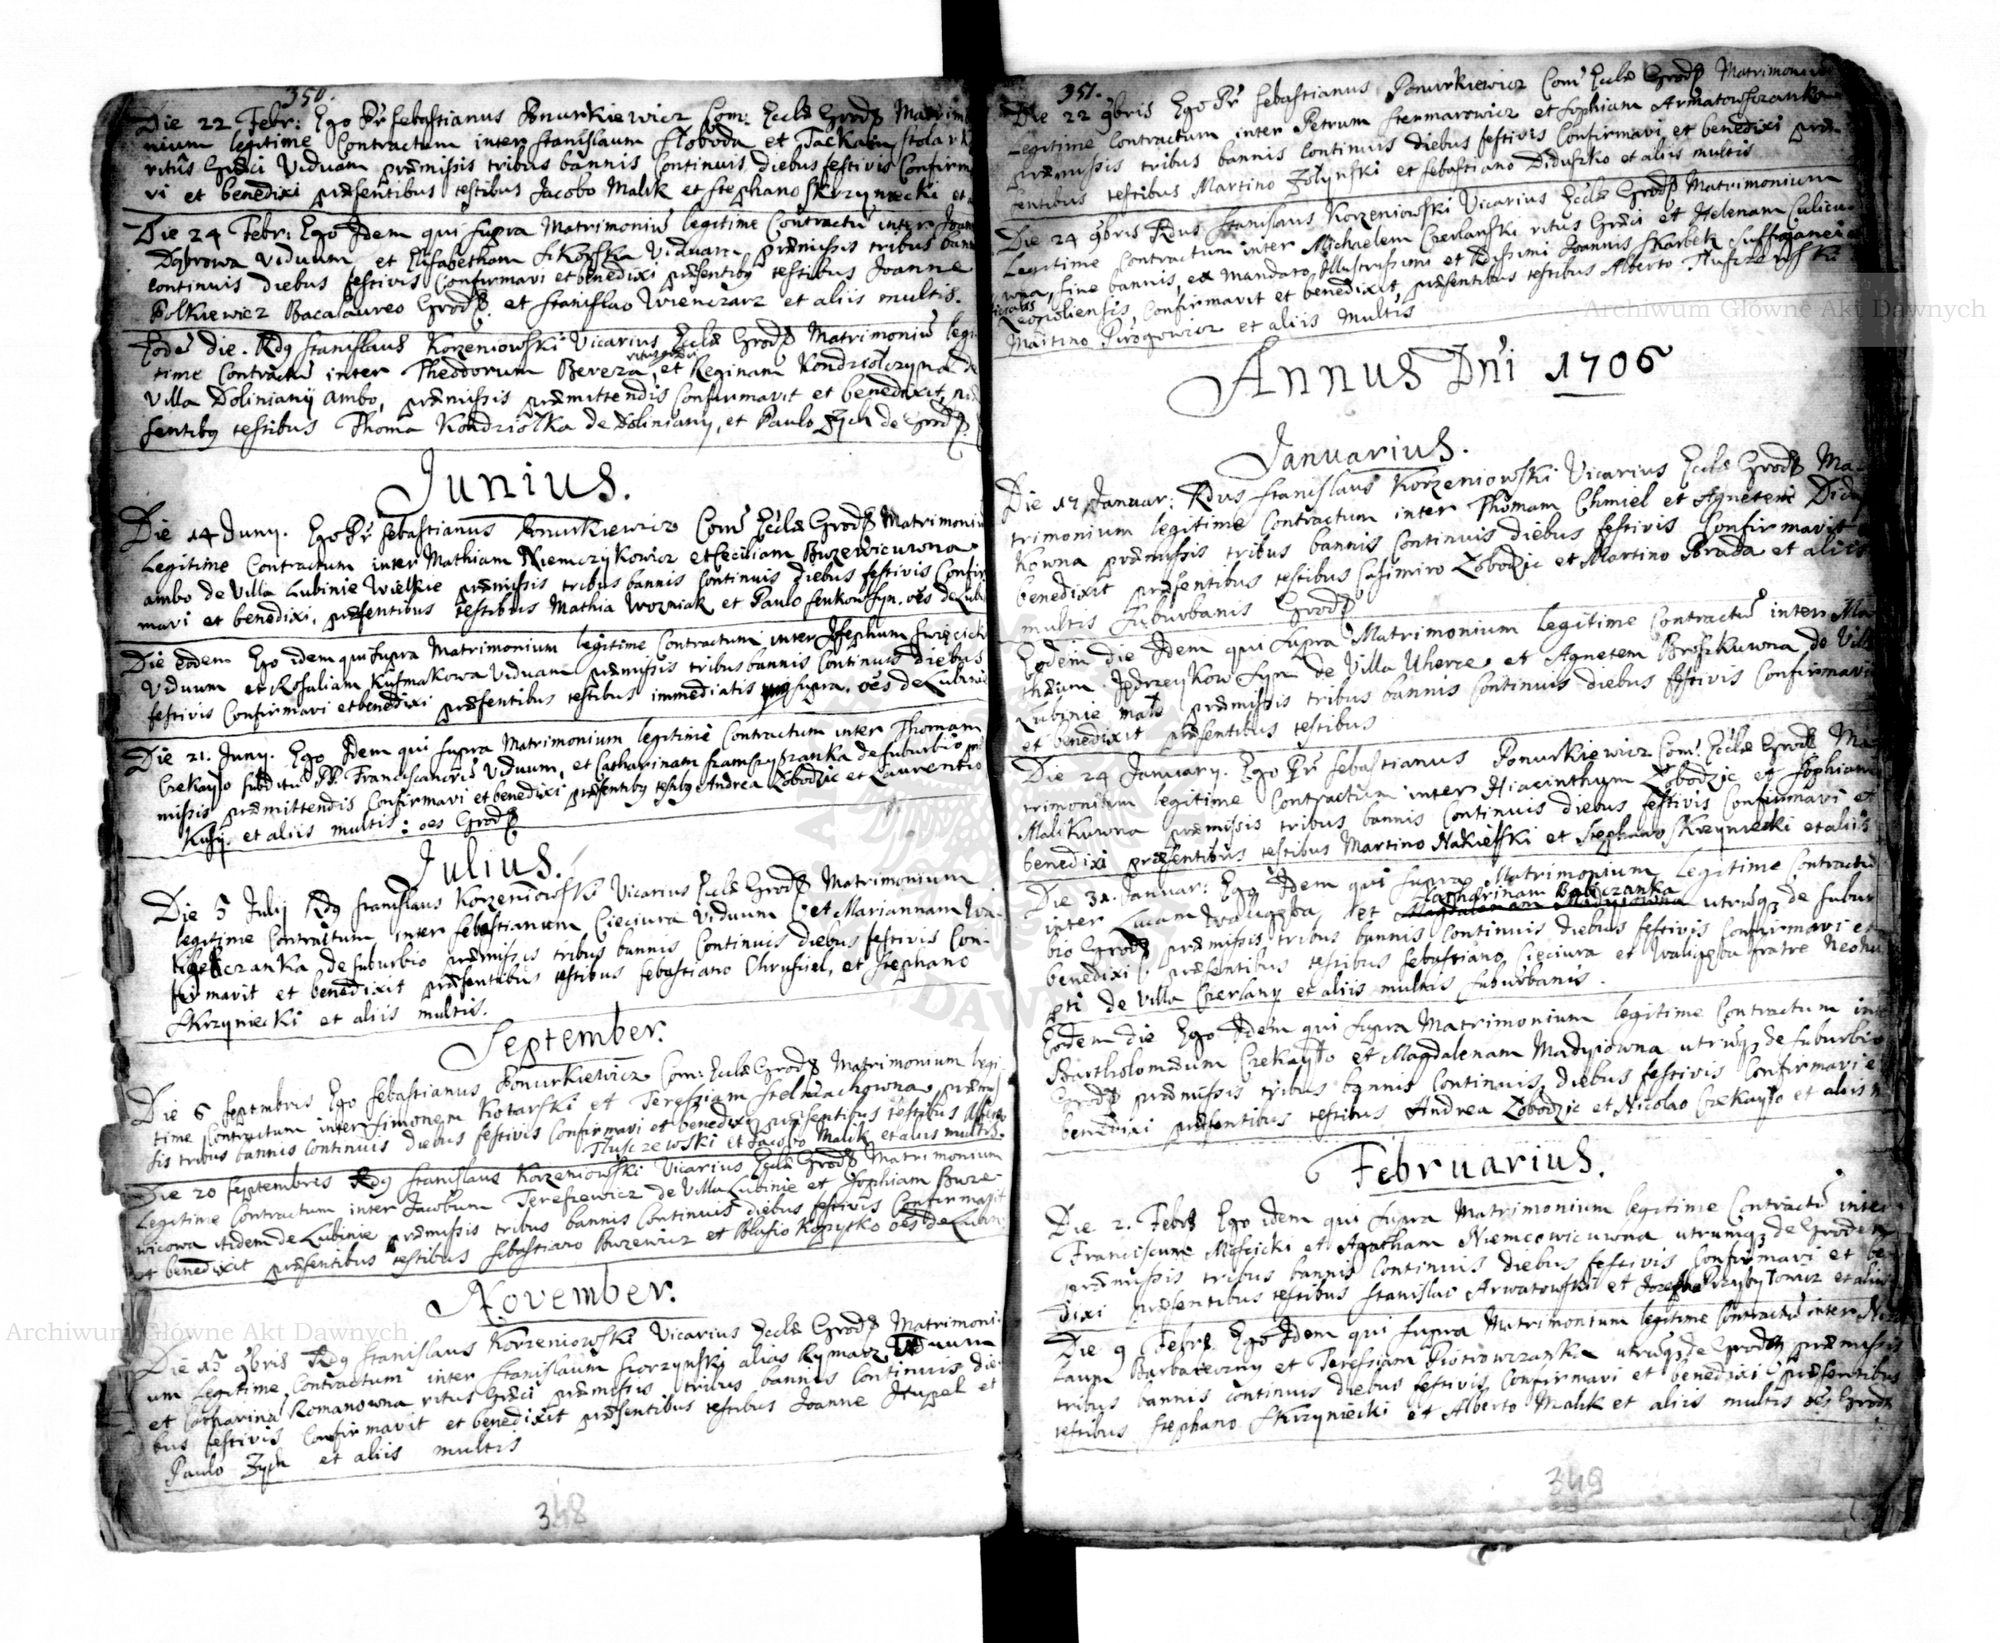 350.
Die 22 Febr: Ego Pr Sebastianus Ponurkiewicz Com: Eccl Grod Matrimo
nium legitime Contractum inter Stanislaum Sloboda et Tackam Stolark
ritus Græci Viduam præmissis tribus bannis Continuis diebus festivis Confirma
vi et benedixi præsentibus testibus Jacobo Malik et Stephano Skrzyniecki et a
Die 24 Febr: Ego Idem qui supra Matrimoniu legitime Contractu inter Joan
Dąbrowa Viduum et Elisabetham Sikorska Viduam præmissis tribus bann
Continuis diebus festivis Confirmavi et benedixi præsentibg testibus Joanne
Polkiewicz Bacalaureo Grod. et Stanislao Wrenczarz et aliis multis.
Eode die. Rdg Stanislaus Korzeniowski Vicarius Eccl Grod Matrimoniu legi
time Contractu inter Theodorum Bereza et Reginam Kondziolczyna de
villa Doliniany ambo, præmissis præmittendis Confirmavit et benedixit, præ
sentibg testibus Thoma Kondziolka de Doliniany, et Paulo Zych de Grod
Junius.
Die 14 Juny. Ego Pr Sebastianus Ponurkiewicz Com Eccl Grod Matrimoniu
Legitime Contractum inter Mathiam Niemczykowicz et Ceciliam Buzewicuwna
ambo de Villa Lubinie Wielkie præmissis tribus bannis Continuis diebus festivis Confir
mavi et benedixi, præsentibus testibus Mathia Wozniak et Paulo Senkow syn. oes de Lubi
Die eodem Ego idem qui Supra Matrimonium legitime Contractum inter Josephum Swięcick
Viduum et Rosaliam Kusmakowa Viduam præmissis tribus bannis Continuis diebus
festivis Confirmavi et benedixi præsentibus testibus immediatis supra. oes de Lubinie
Die 21. Juny. Ego Idem qui supra Matrimonium legitime Contractum inter Thomam
Czekayło Subditu PP Franciscanoru Viduum, et Catharinam de suburbio præ
missis præmittendis Confirmavi et benedixi præsentibg testibg Andrea Zobodzic et Laurentio
et aliis multis: oes Grod
Julius.
Die 5 July Rdg Stanislaus Korzeniowski Vicarius Eccl Grod Matrimonium
legitime Contractum inter Sebastianum Cięciura Viduum et Mariannam Wa
czanka de suburbio præmissis tribus bannis Continuis diebus festivis Con-
firmavit et benedixit præsentibus testibus Sebastiano Chrusciel, et Stephano
Skrzyniecki et aliis multis.
September.
Die 6 Septembris Ego Sebastianus Ponurkiewicz Com: Eccl Grod Matrimonium legi
time Contractum inter Simonem Kotarski et Teressiam Stelmachowna, præmis
sis tribus bannis Continuis diebus festivis Confirmavi et benedixi præsentibus testibus
Tluszczewski et Jacobo Malik et aliis multis.
Die 20 Septembris Rdg Stanislaus Korzeniowski Vicarius Eccl Grod Matrimonium
Legitime Contractum inter Jacobum Tereszewicz de Villa Lubinie et Sophiam Buze-
wicowa itidem de Lubinie præmissis tribus bannis Continuis diebus festivis Confirmavit
et benedixit præsentibus testibus Sebastiano Buzewicz et Blasio oes de Lubin
November.
Die 15 9bris Rdg Stanislaus Korzeniowski Vicarius Eccl Grod Matrimoni-
um Legitime Contractum inter Stanislaum alias Rymarz Viduum
et Catharina Romanowna ritus Græci præmissis tribus bannis Continuis die
bus festivis Confirmavit et benedixit præsentibus testibus Joanne Hupel et
Paulo Zych et aliis multis
348
351.
Die 22 9bris Ego Pr Sebastianus Ponurkiewicz Com Eccl Grod Matrimoniu
Legitime Contractum inter Petrum Stenmarowicz et Sophiam
præmissis tribus bannis Continuis diebus festivis Confirmavi et benedixi præ
sentibus testibus Martino Zolynski et Sebastiano Diduszko et aliis multis
Die 24 9bris Rdus Stanislaus Korzeniowski Vicarius Eccl Grod Matrimonium
Legitime Contractum inter Michaelem Czerlanski ritus Græci et Helenam
wna, sine bannis, ex mandato Illustrissimi et Rdissimi Joannis Skarbek Suffraganei
Leopoliensis, Confirmavit et benedixit præsentibus testibus Alberto
Martino Pirogowicz et aliis multis
Annus Dni 1706
Januarius.
Die 17 Januar: Rdus Stanislaus Korzeniowski Vicarius Eccl Grod Ma-
trimonium legitime Contractum inter Thomam Chmiel et Agnetem Didu
kowna præmissis tribus bannis Continuis diebus festivis Confirmavit
benedixit præsentibus testibus Casimiro Zobodzic et Martino Broda et aliis
multis Suburbanis Grod
Eodem die Idem qui supra Matrimonium legitime Contractu inter Ma
thæum Jędrzeykow Syn de Villa Uherce et Agnetem Broszkuwna de Villa
Lubinie małe præmissis tribus bannis Continuis diebus festivis Confirmavi
et benedixit præsentibus testibus
Die 24 January. Ego Pr Sebastianus Ponurkiewicz Com Eccl Grod Ma
trimonium legitime Contractum inter Hiacinthum Zobodzic et Sophiam
Malikuwna præmissis tribus bannis Continuis diebus festivis Confirmavi et
benedixi præsentibus testibus Martino Nakielski et Stephano Skrzyniecki et aliis
Die 31. Januar: Ego Idem qui supra Matrimonium Legitime Contractu
Catharinam
inter Lucam Waligęba, et Magdalenam Madyiowna utrumq de Subur
bio Grod præmissis tribus bannis Continuis diebus festivis Confirmavi et
benedixi, præsentibus testibus Sebastiano Cięciura et Waligęba fratre Neonu
pti de Villa Czerlany et aliis multis suburbanis.
Eodem die Ego Idem qui supra Matrimonium legitime Contractum inte
Bartholomæum Czekayło et Magdalenam Madyiowna utrumq de suburbio
Grod præmissis tribus bannis Continuis diebus festivis Confirmavi et
benedixi præsentibus testibus Andrea Zobodzic et Nicolao Czekayło et aliis m
Februarius.
Die 2. Febr Ego idem qui supra Matrimonium legitime Contractu inter
Franciscum Moscicki et Agatham Niemcowicuwna utrumq de Grodek
præmissis tribus bannis Continuis diebus festivis Confirmavi et bene
dixi præsentibus testibus Stanislao Arwatowski et Josepho et aliis
Die 9 Febr. Ego Idem qui supra Matrimonium legitime Contractu inter
et Teressiam Piotrowczanka utrumq de Grodek præmissis
tribus bannis continuis diebus festivis Confirmavi et benedixi præsentibus
testibus Stephano Skrzyniecki et Alberto Malik et aliis multis oes Grod
349
Archiwum Główne Akt Dawnych
Archiwum Główne Akt Dawnych